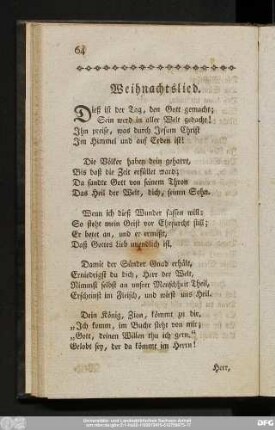 64
Weihnachtslied.
Dieß ist der Tag, den Gott gemacht;
Sein werd in aller Welt gedacht!
Ihn preise, was durch Jesum Christ
Im Himmel und auf Erden ist!
Die Völker haben dein geharrt,
Bis daß die Zeit erfüllet ward;
Da sandte Gott von seinem Thron
Das Heil der Welt, dich, seinen Sohn.
Wenn ich dieß Wunder fassen will:
So steht mein Geist vor Ehrfurcht still;
Er betet an, und er ermißt,
Daß Gottes Lieb unendlich ist.
Damit der Sünder Gnad erhält,
Erniedrigst du dich, Herr der Welt,
Nimmst selbst an unsrer Menschheit Theil,
Erscheinst im Fleisch, und wirst uns Heil.
Dein König, Zion, kömmt zu dir.
„Ich komm, im Buche steht von mir;
„Gott, deinen Willen thu ich gern.“
Gelobt sey, der da kömmt im Herrn!
Herr,
DFG